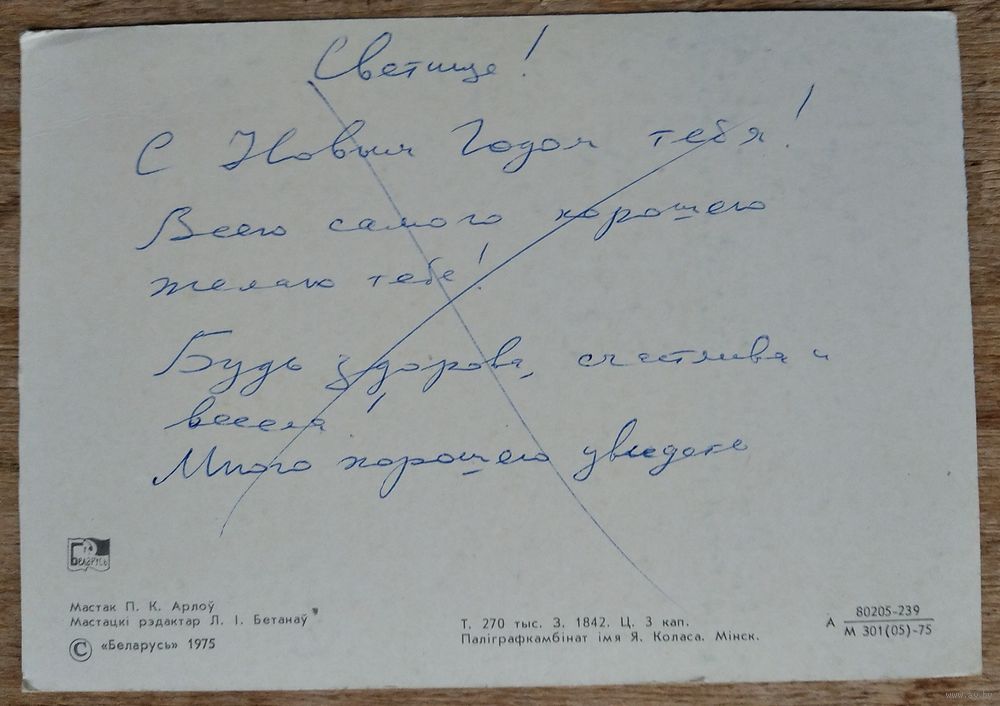 Светище!
С Новым Годом тебя!
Всего самого хорошего
желаю тебе!
Будь здорова, счастлива и
весела!
Много хорошего
БЕЛАРУСЬ
Мастак П. К. Арлоў
Мастацкі рэдактар Л. І. Бетанаў
© «Беларусь» 1975
Т. 270 тыс. З. 1842. Ц. 3 кап.
Паліграфкамбінат імя Я. Коласа. Мінск.
А 80205-239
М 301(05)-75
www.ay.by